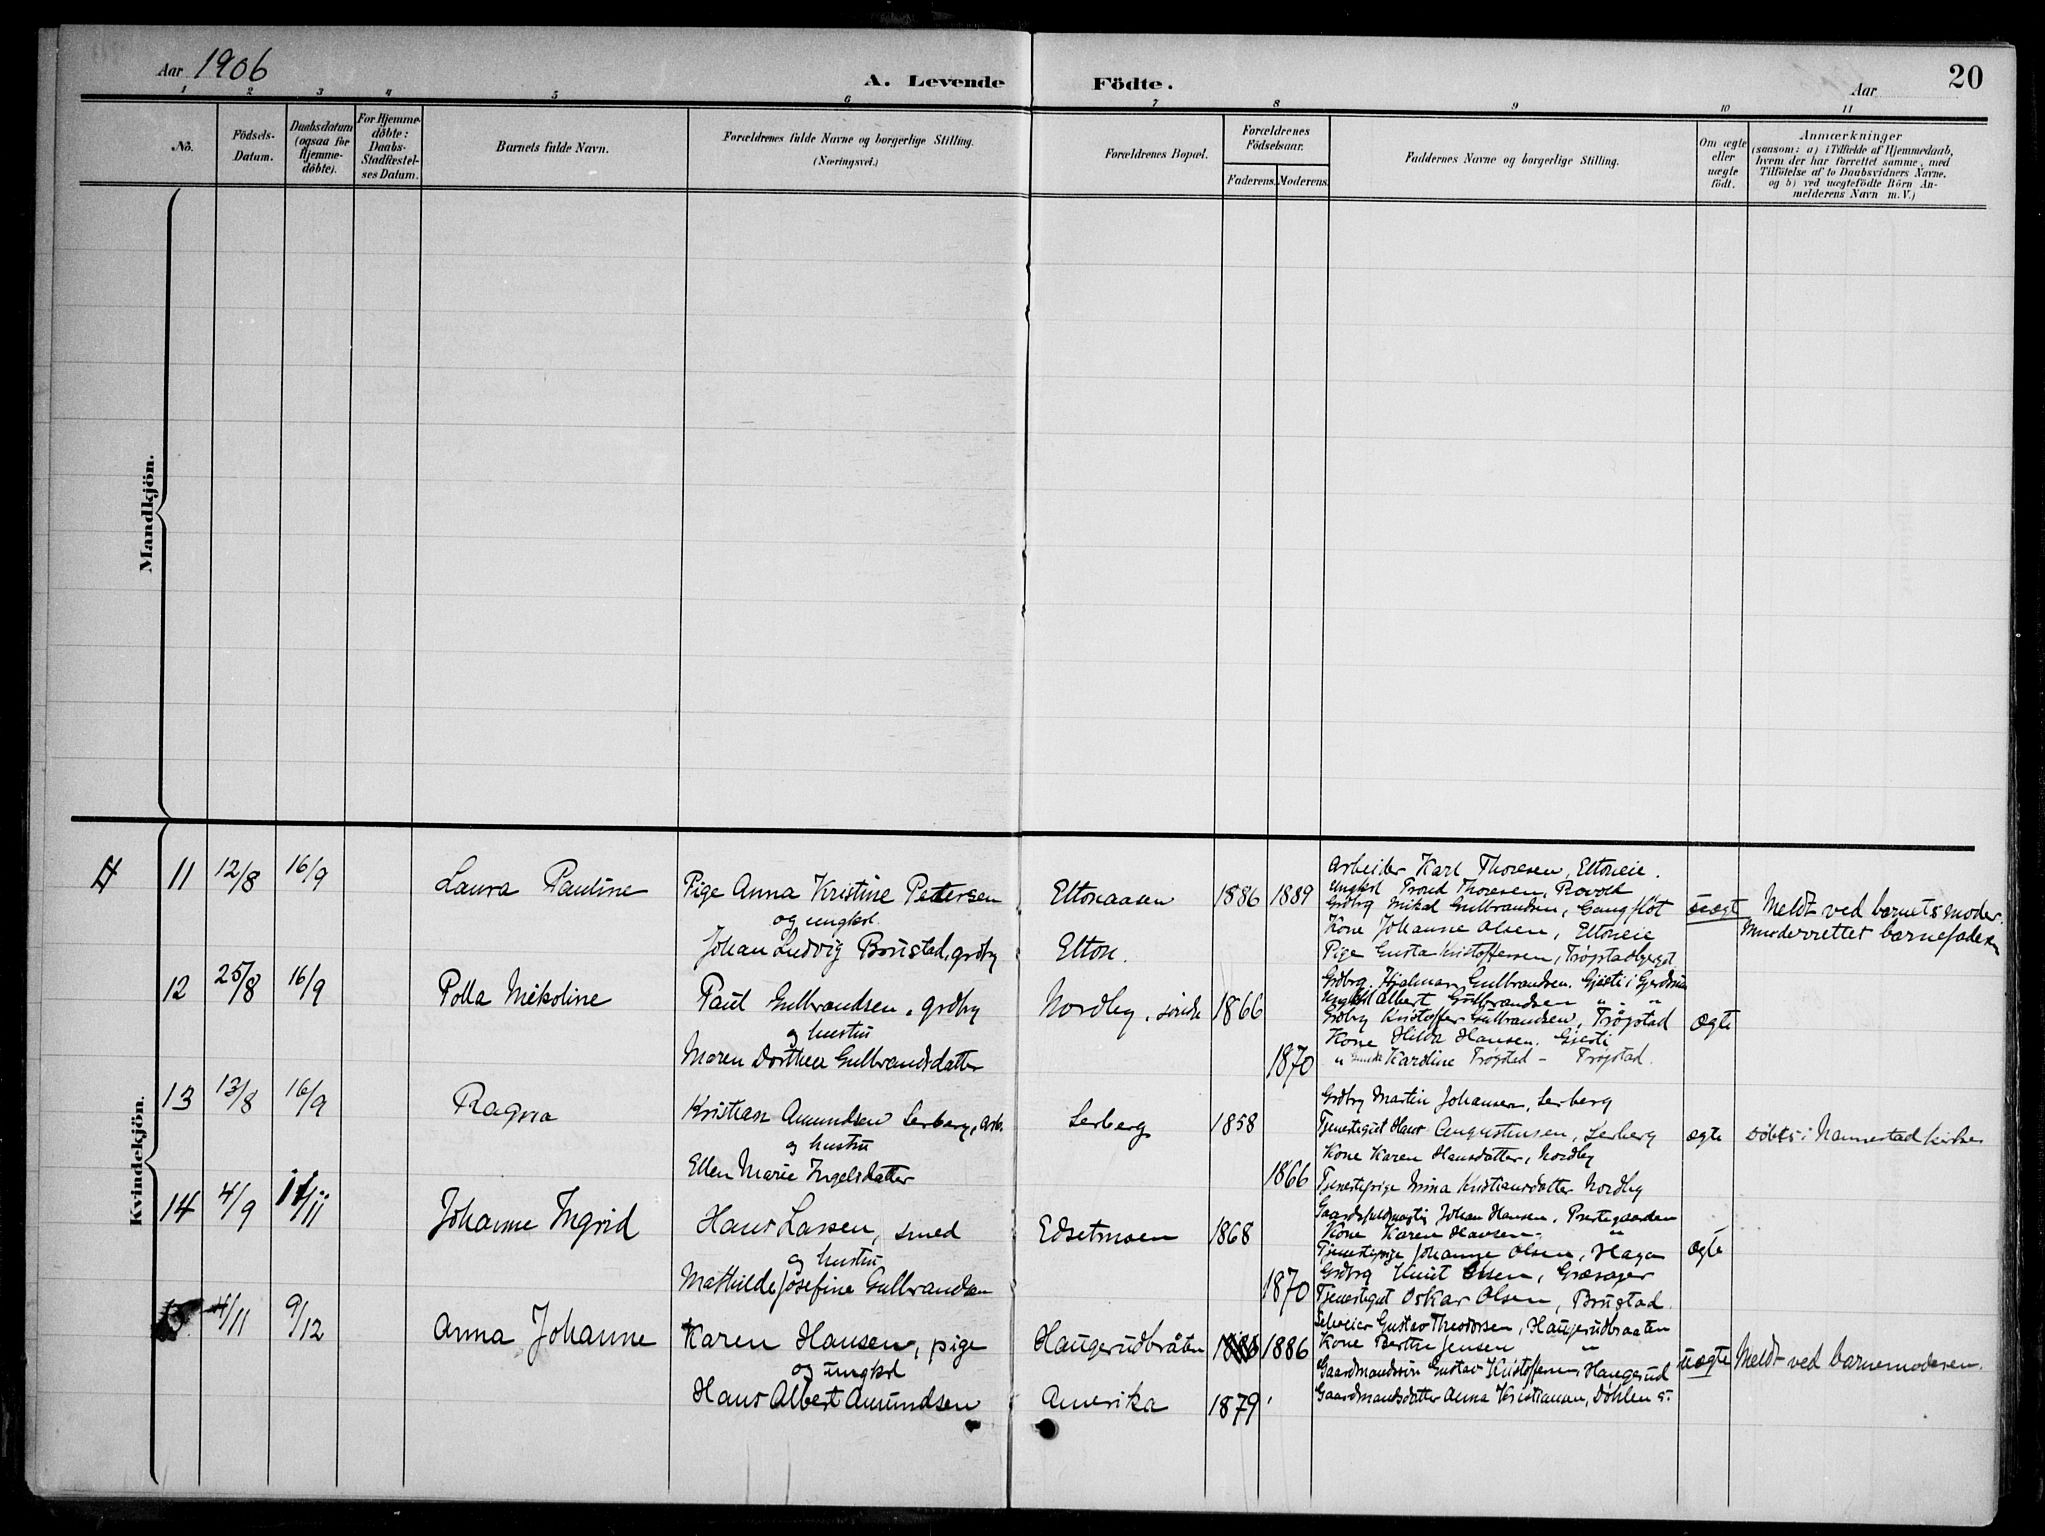 Aar 1906
A. Levende Födte.
Aar
20
1 2 3 4 5 6 7 8 9 10 11
No.
Födsels-
Datum.
Daabsdatum
(ogsaa for
Hjemme-
döbte).
For Hjemme-
döbte:
Daabs-
Stadfæstel-
ses Datum.
Barnets fulde Navn.
Forældrenes fulde Navne og borgerlige Stilling.
(Næringsvei.)
Forældrenes Bopæl.
Forældrenes
Födselsaar.
Faderens. Moderens.
Faddernes Navne og borgerlige Stilling.
Om ægte
eller
uægte
födt.
Anmærkninger
(saasom: a) i Tilfælde af Hjemmedaab,
hvem der har forrettet samme, med
Tilföielse af to Daabsvidners Navne.
og b) ved uægtefödte Börn An-
melderens Navn m.V.)
Mandkjön.
Kvindekjön.
11 12/8 16/9
Laura Pauline
Pige Anna Kristine Petersen
og ungkl.
Johan Ludvig Brustad, grdbr
Eltonaaen
Elton.
1886 1889
Arbeider Karl Thoresen, Eltoneie.
Ungkl Trond Thoresen,
Grdbrg Mikal Gulbrandsen,
Kone Johanne Olsen, Eltoneie
Pige Gusta Kristoffersen,
uægt
Meldt ved barnets moder.
barnefaderen
12 25/8 16/9
Polla Nikoline
Paul Gulbrandsen, grdbr
og hustru
Maren Dorthea Gulbrandsdatter
Nordby, søndre
1866
1870
Grdbrg. Hjalmar Gulbrandsen, Gjesti i Gjerdrum
Albert Gulbrandsen " "
Grdbrg Kristoffer Gulbrandsen, Trøgstad
Kone Hilda Hansen, Gjesti
" Karoline Trøgstad - Trøgstad.
ægte
13 13/8 16/9
Ragna
Kristian Amundsen Lerberg, arb.
og hustru
Ellen Marie Ingelsdatter
Lerberg
1858
1866
Grdbr Martin Johansen, Lerberg
Tjenestegut Hans Augustinsen, Lerberg
Kone Karen Hansdatter, Nordby
Tjenestepige Mina Kristiansdatter Nordby
ægte
Döbt i Nannestad kirke
14 4/9 11/11
Johanne Ingrid
Hans Larsen, smed
og hustru
Mathilde Josefine Gulbrandsen
Edsetmoen
1868
1870
Gaardsfuldmægtig Johan Hansen, Prestegaarden
Kone Karen Hansen "
Tjenestepige Johanne Olsen, Haga
Grdbrg Knut Olsen, Græsager
Tjenestegut Oskar Olsen, Brustad.
ægte
15. 4/11 9/12
Anna Johanne
Karen Hansen, pige
og ungkl
Hans Albert Amundsen
Haugerudbråten
Amerika
1886 1886
1879
Selveier Gustav Theodorsen, Haugerudbraaten
Kone Berthe Jensen "
Gaardmandssøn Gustav Kristoffersen, Haugerud
Gaardmandsdatter Anna Kristiansen, Døhlen s.
uægte
Meldt ved barnemoderen.